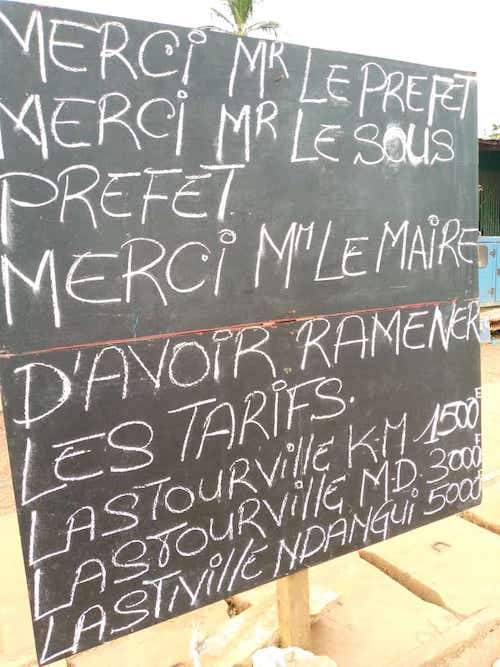 MERCi MR LE PREFET
MERCi MR LE SOUS
PREFET.
MERCi Mm LE MAiRE
D'AVOiR RAMENER
LES TARiFS.
LASTOURVillE K.M 1500F
LASTOURVillE M.D. 3000F
LASTIVillE NDANGUi 5000F